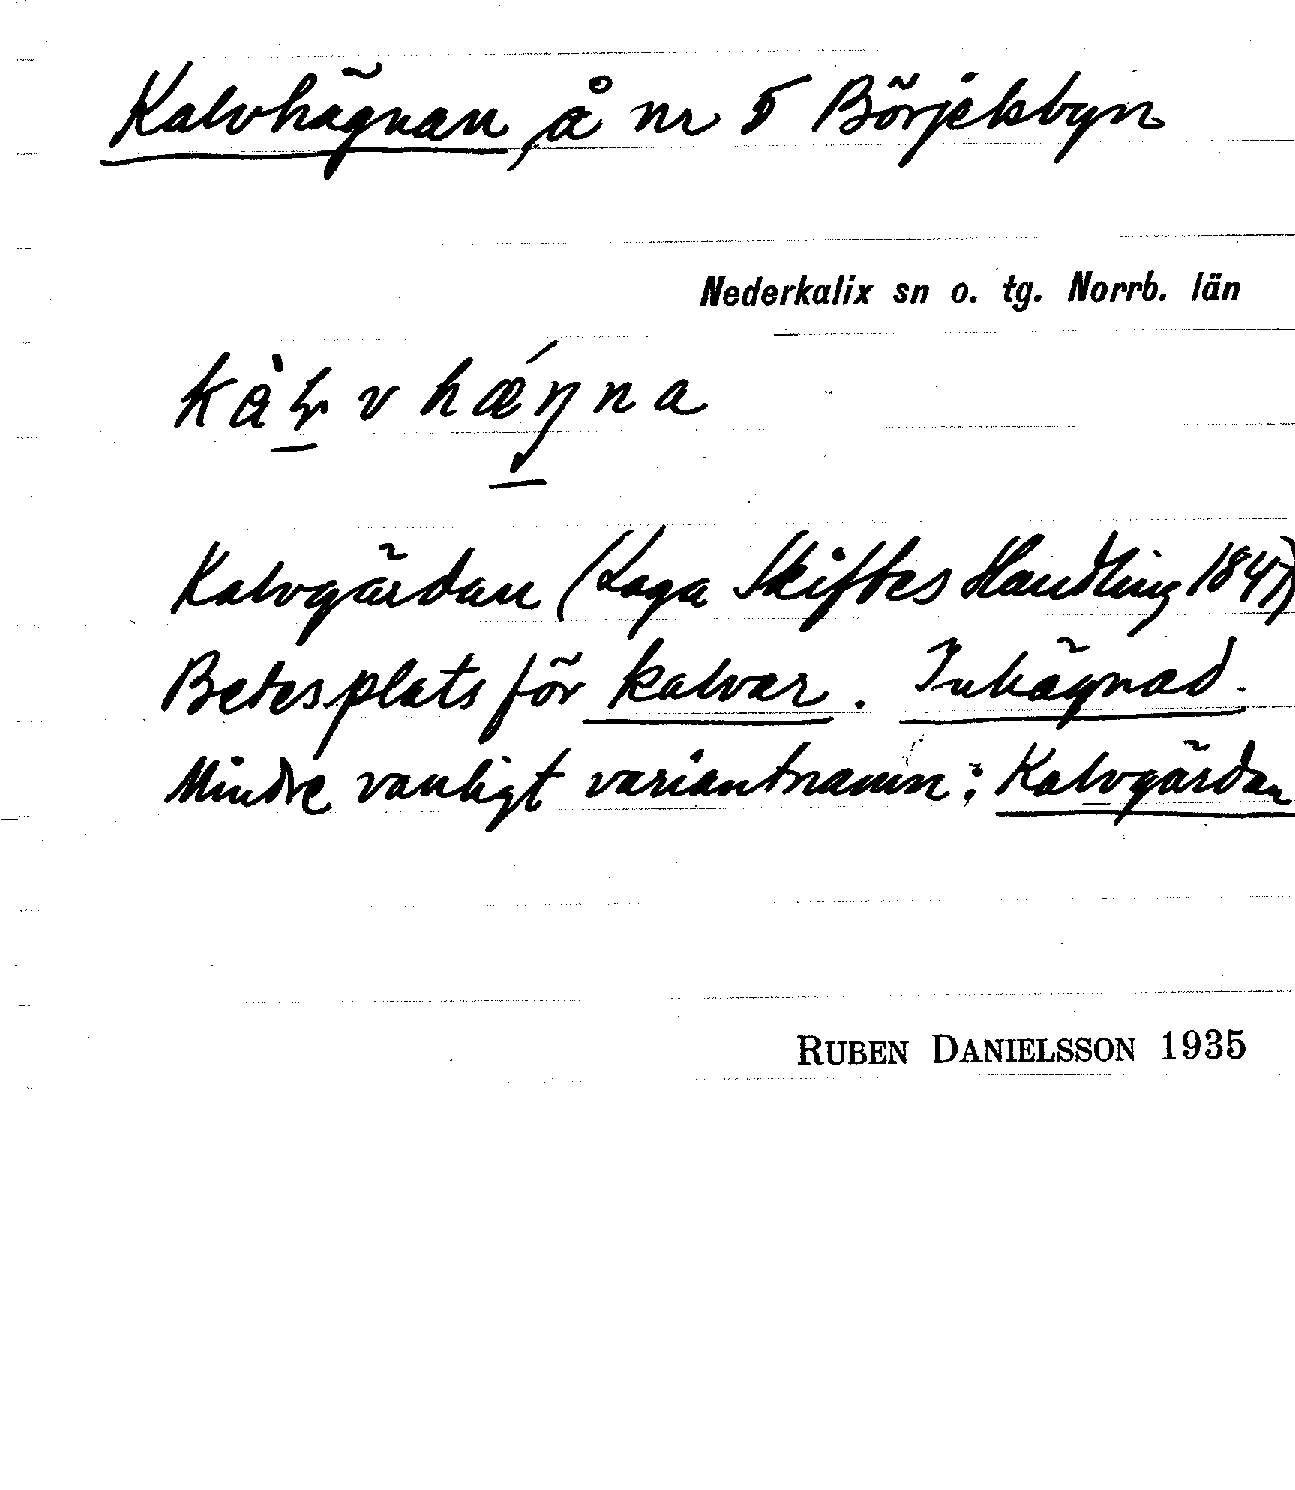 Kalvhägnan, å nr 5 Börjelsbyn
Nederkalix sn o. tg. Norrb. län
Kalvgärdan (Laga Skiftes Handling 1847)
Betesplats för kalvar. Inhägnad.
Mindre vanligt variantnamn: Kalvgärdan
RUBEN DANIELSSON 1935